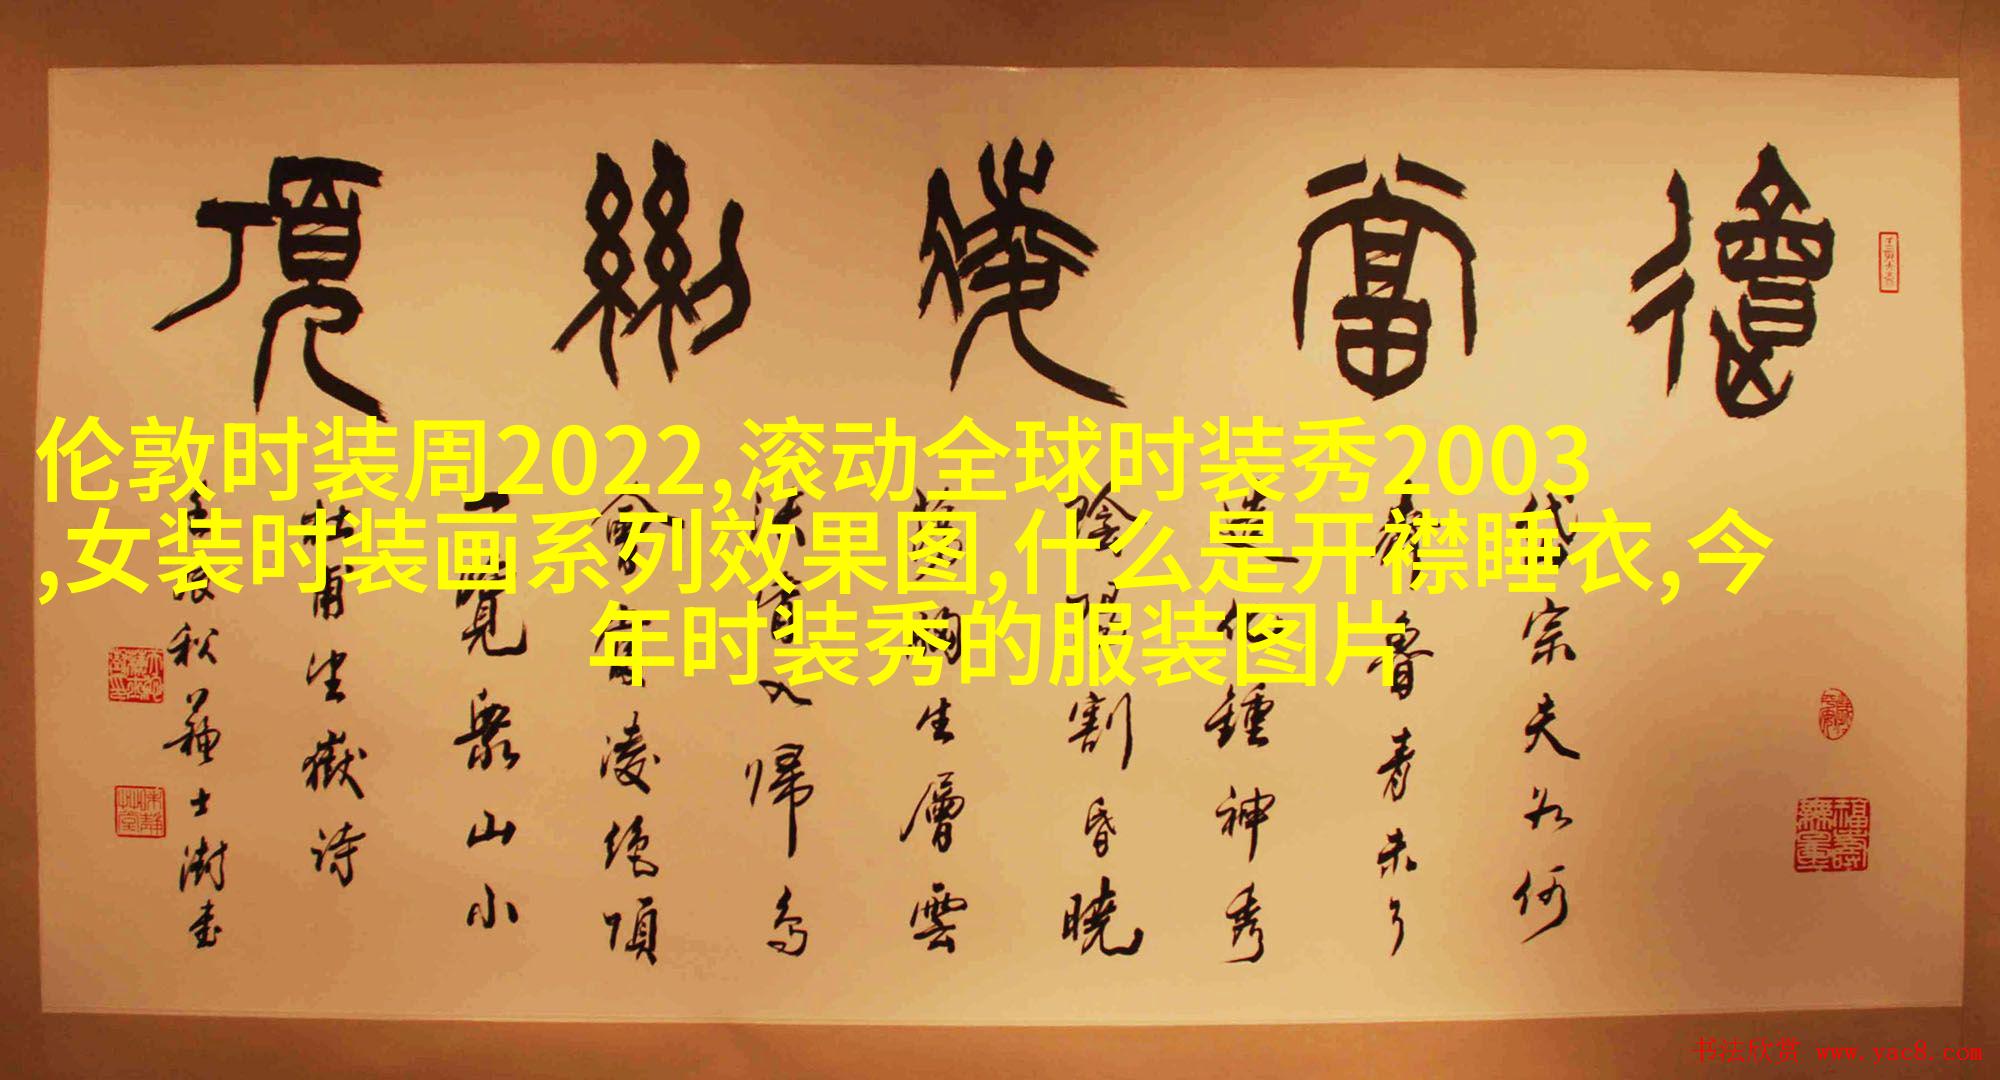 會當凌絕頂
伦敦时装周2022,滚动全球时装秀2003
,女装时装画系列效果图,什么是开襟睡衣,今
年时装秀的服装图片
岱宗夫如何
齊魯青未了
造化鍾神秀
陰陽割昏曉
蕩胸生層雲
決眥入歸鳥
會當凌絕頂
一覽衆山小
杜甫望嶽詩
壬辰秋蘇士澍書
福壽無量
书法欣赏 www.yac8.com